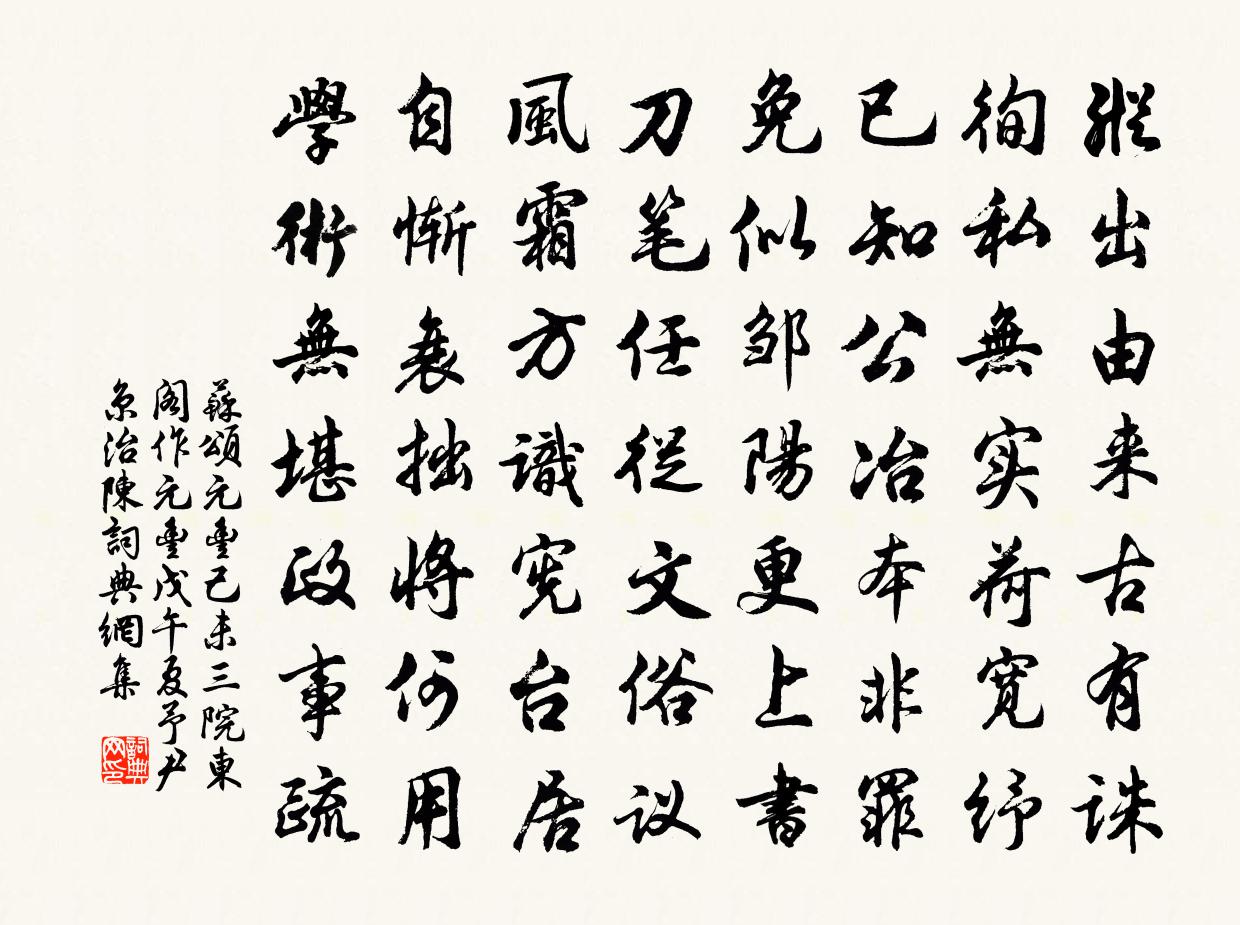 縱出由来古有誅
徇私無实荷寬紓
已知公冶本非罪
免似邹陽更上書
刀笔任従文俗议
風霜方識宪台居
自慚衰拙將何用
學術無堪政事疏
蘇頌元豊己未三院東
阁作元豊戊午夏予尹
京治陳詞典網集
詞典
网印